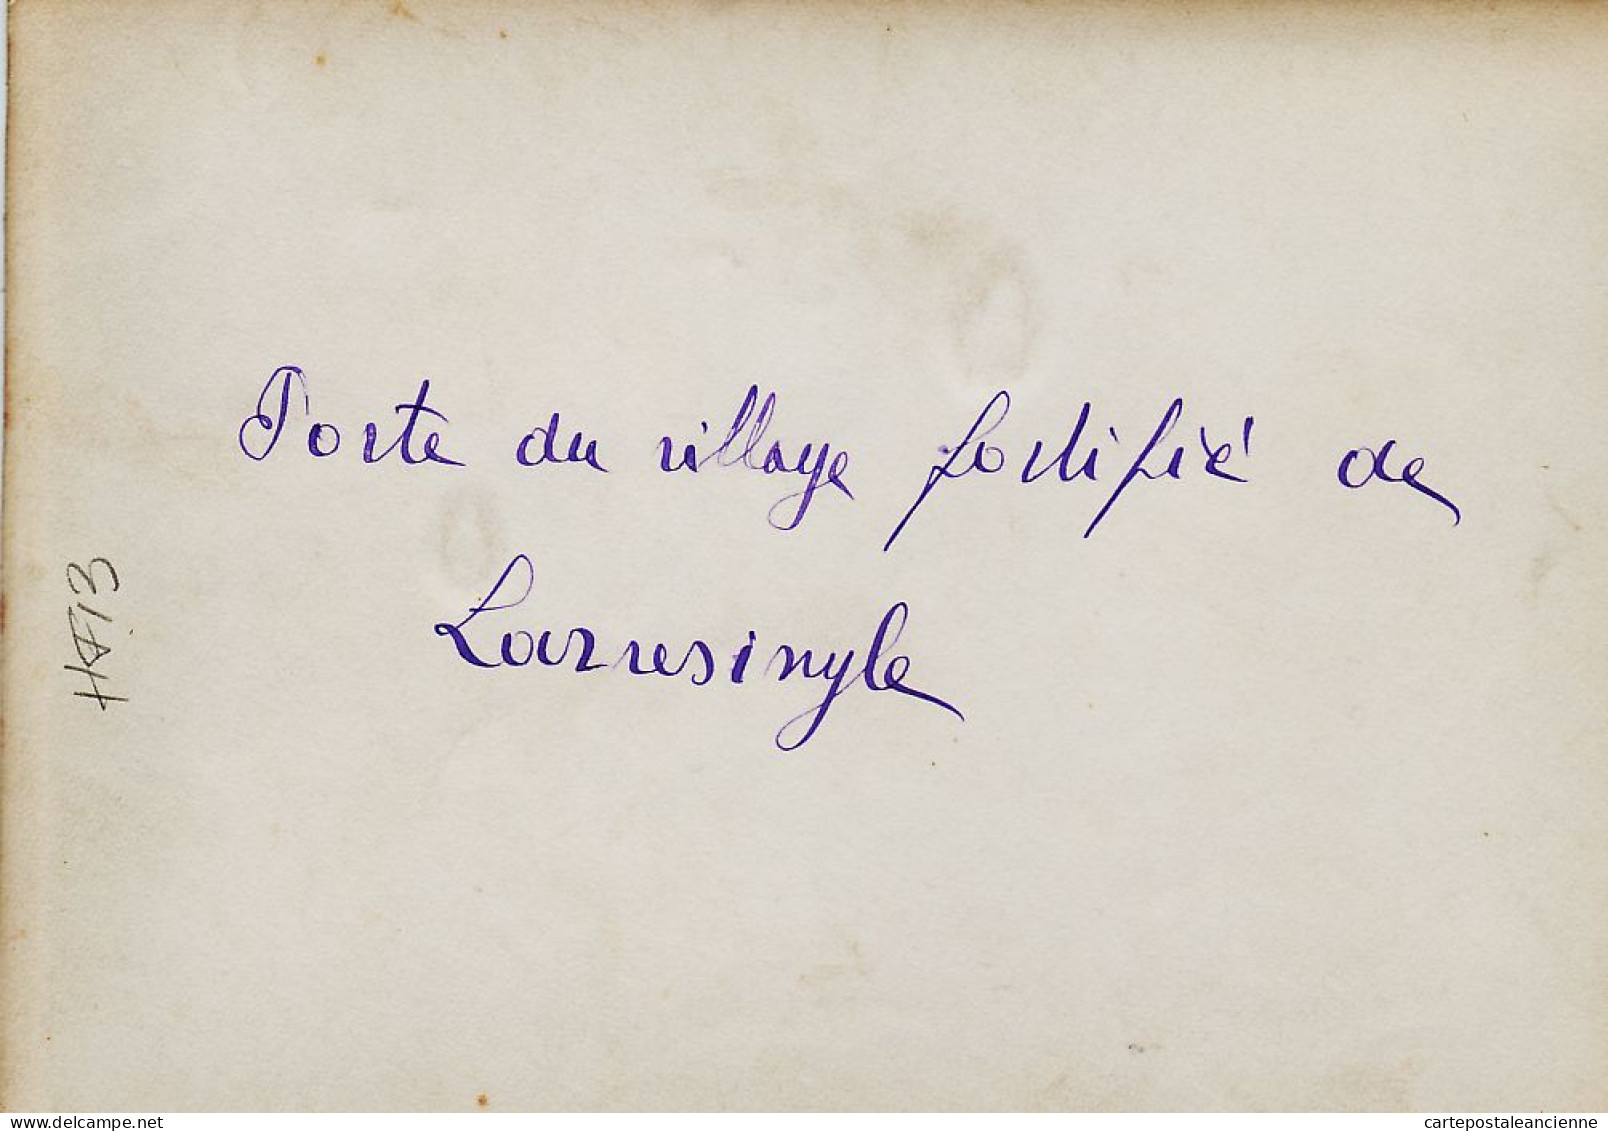 Porte du village fortifié de
Larresingle
delcampe.net
cartepostaleancienne